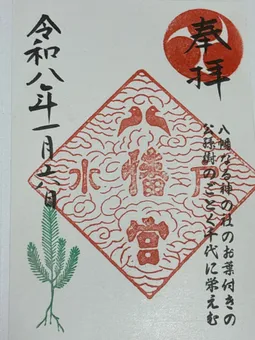 奉拝
八幡なる神の杜のお葉付きの
公孫樹のごとく千代に栄えむ
水戸
八幡宮
令和八年一月六日